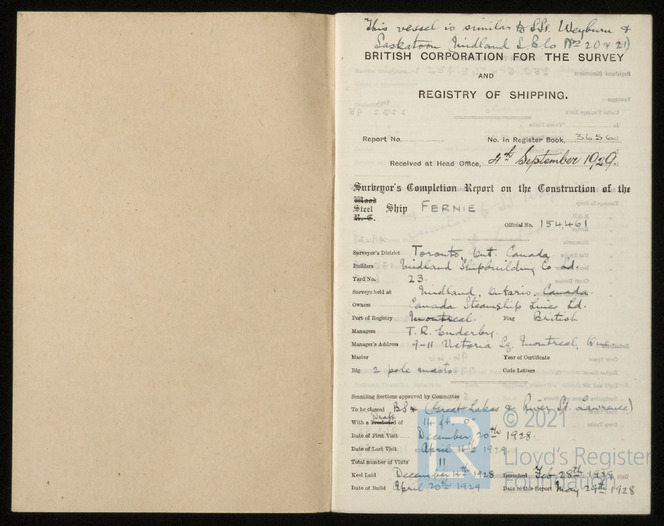 This vessel is similar to S.S. Weyburn &
Saskatoon (Midland S. B. Co Nos 20 & 21)
BRITISH CORPORATION FOR THE SURVEY
AND
REGISTRY OF SHIPPING.
Report No. No. in Register Book, 3656
Received at Head Office, 4th September 1929.
Surveyor's Completion Report on the Construction of the
Wood
Steel Ship FERNIE
Official No. 154,461
Surveyor's District Toronto, Ont. Canada
Builders Midland Shipbuilding Co Ld.
Yard No. 23.
Surveys held at Midland, Ontario, Canada
Owners Canada Steamship Lines Ld.
Port of Registry Montreal Flag British
Managers T. R. Enderby.
Manager's Address 9-11 Victoria Sq. Montreal, Que
Master Year of Certificate
Rig 2 pole masts Code Letters
Scantling Sections approved by Committee
To be classed BS* (Great Lakes & River St. Lawrence)
Draft
With a of 14 ft. 0"
Date of First Visit December 20th 1928.
Date of Last Visit April 1929
Total number of Visits 11
Keel Laid December 1928 Launched Feb 28th 1929
Date of Build April 20th 1929 Date of this Report May 29th 1928
© 2021
Lloyd's Register
Foundation